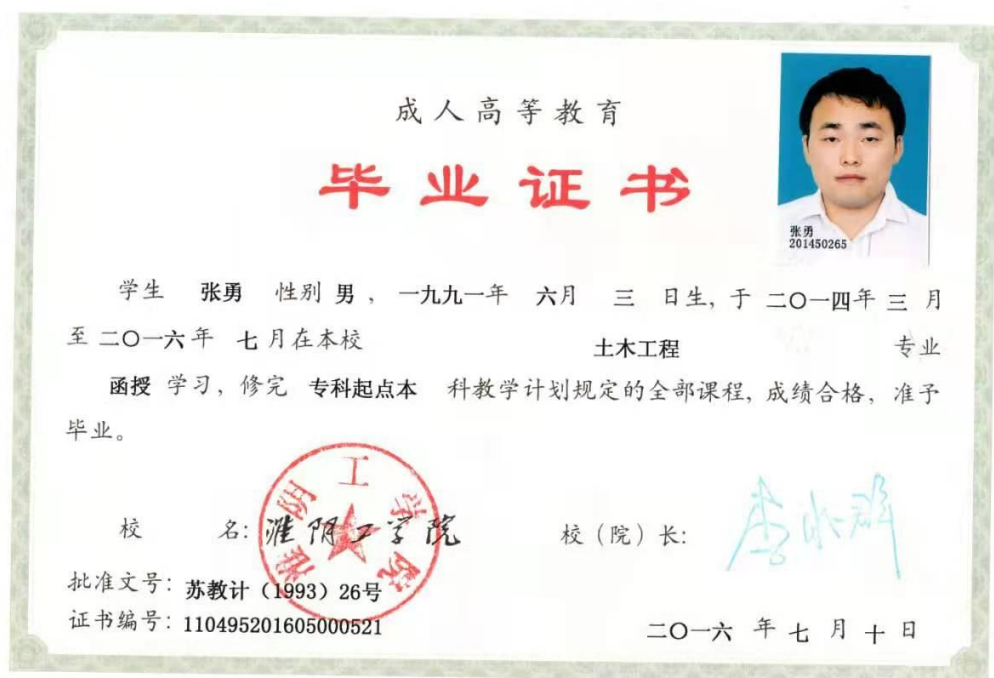 成人高等教育
毕业证书
张勇
201450265
学生 张勇 性别 男 ， 一九九一年 六月 三 日生，于 二〇一四年 三 月
至 二〇一六年 七 月在本校 土木工程 专业
函授 学习，修完 专科起点本 科教学计划规定的全部课程，成绩合格，准予
毕业。
淮阴工学院
校 名：淮阴工学院
校（院）长：
批准文号：苏教计（1993）26号
证书编号：110495201605000521
二〇一六 年 七 月 十 日